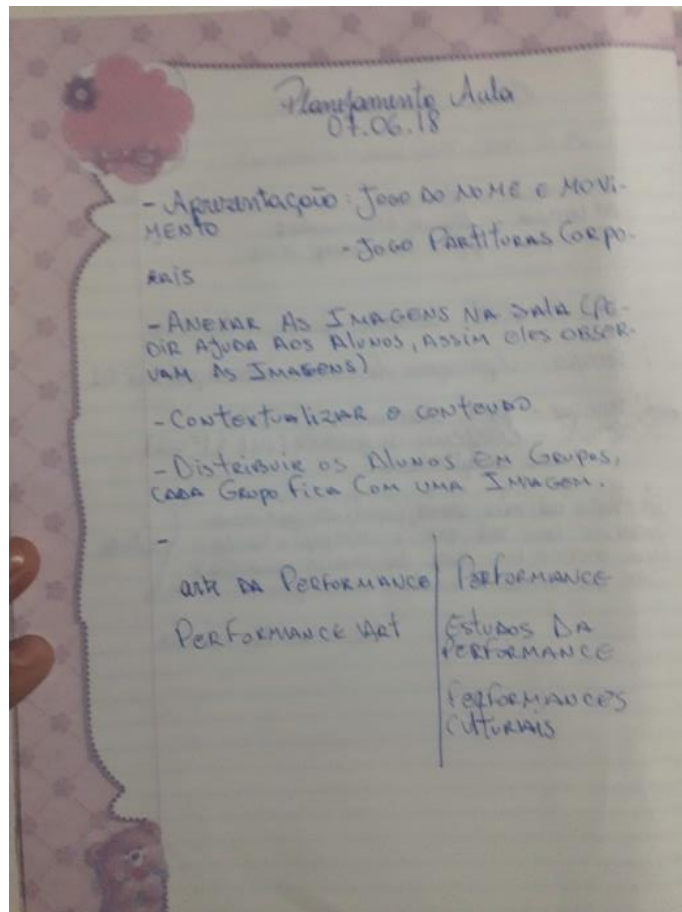 Planejamento Aula
07.06.18
- Apresentação: Jogo do NOME e MOVI-
MENTO
- JOGO PARTITURAS CORPO-
RAIS
- ANEXAR AS IMAGENS NA SALA (PE-
DIR AJUDA AOS ALUNOS, ASSIM eles OBSER-
VAM AS IMAGENS)
- Contextualizar o conteúdo
- Distribuir os Alunos EM GRUPOS,
CADA GRUPO FICA COM UMA IMAGEM.
-
arte DA PERFORMANCE
PERFORMANCE Art
PERFORMANCE
ESTUDOS DA
PERFORMANCE
PERFORMANCES
CULTURAIS